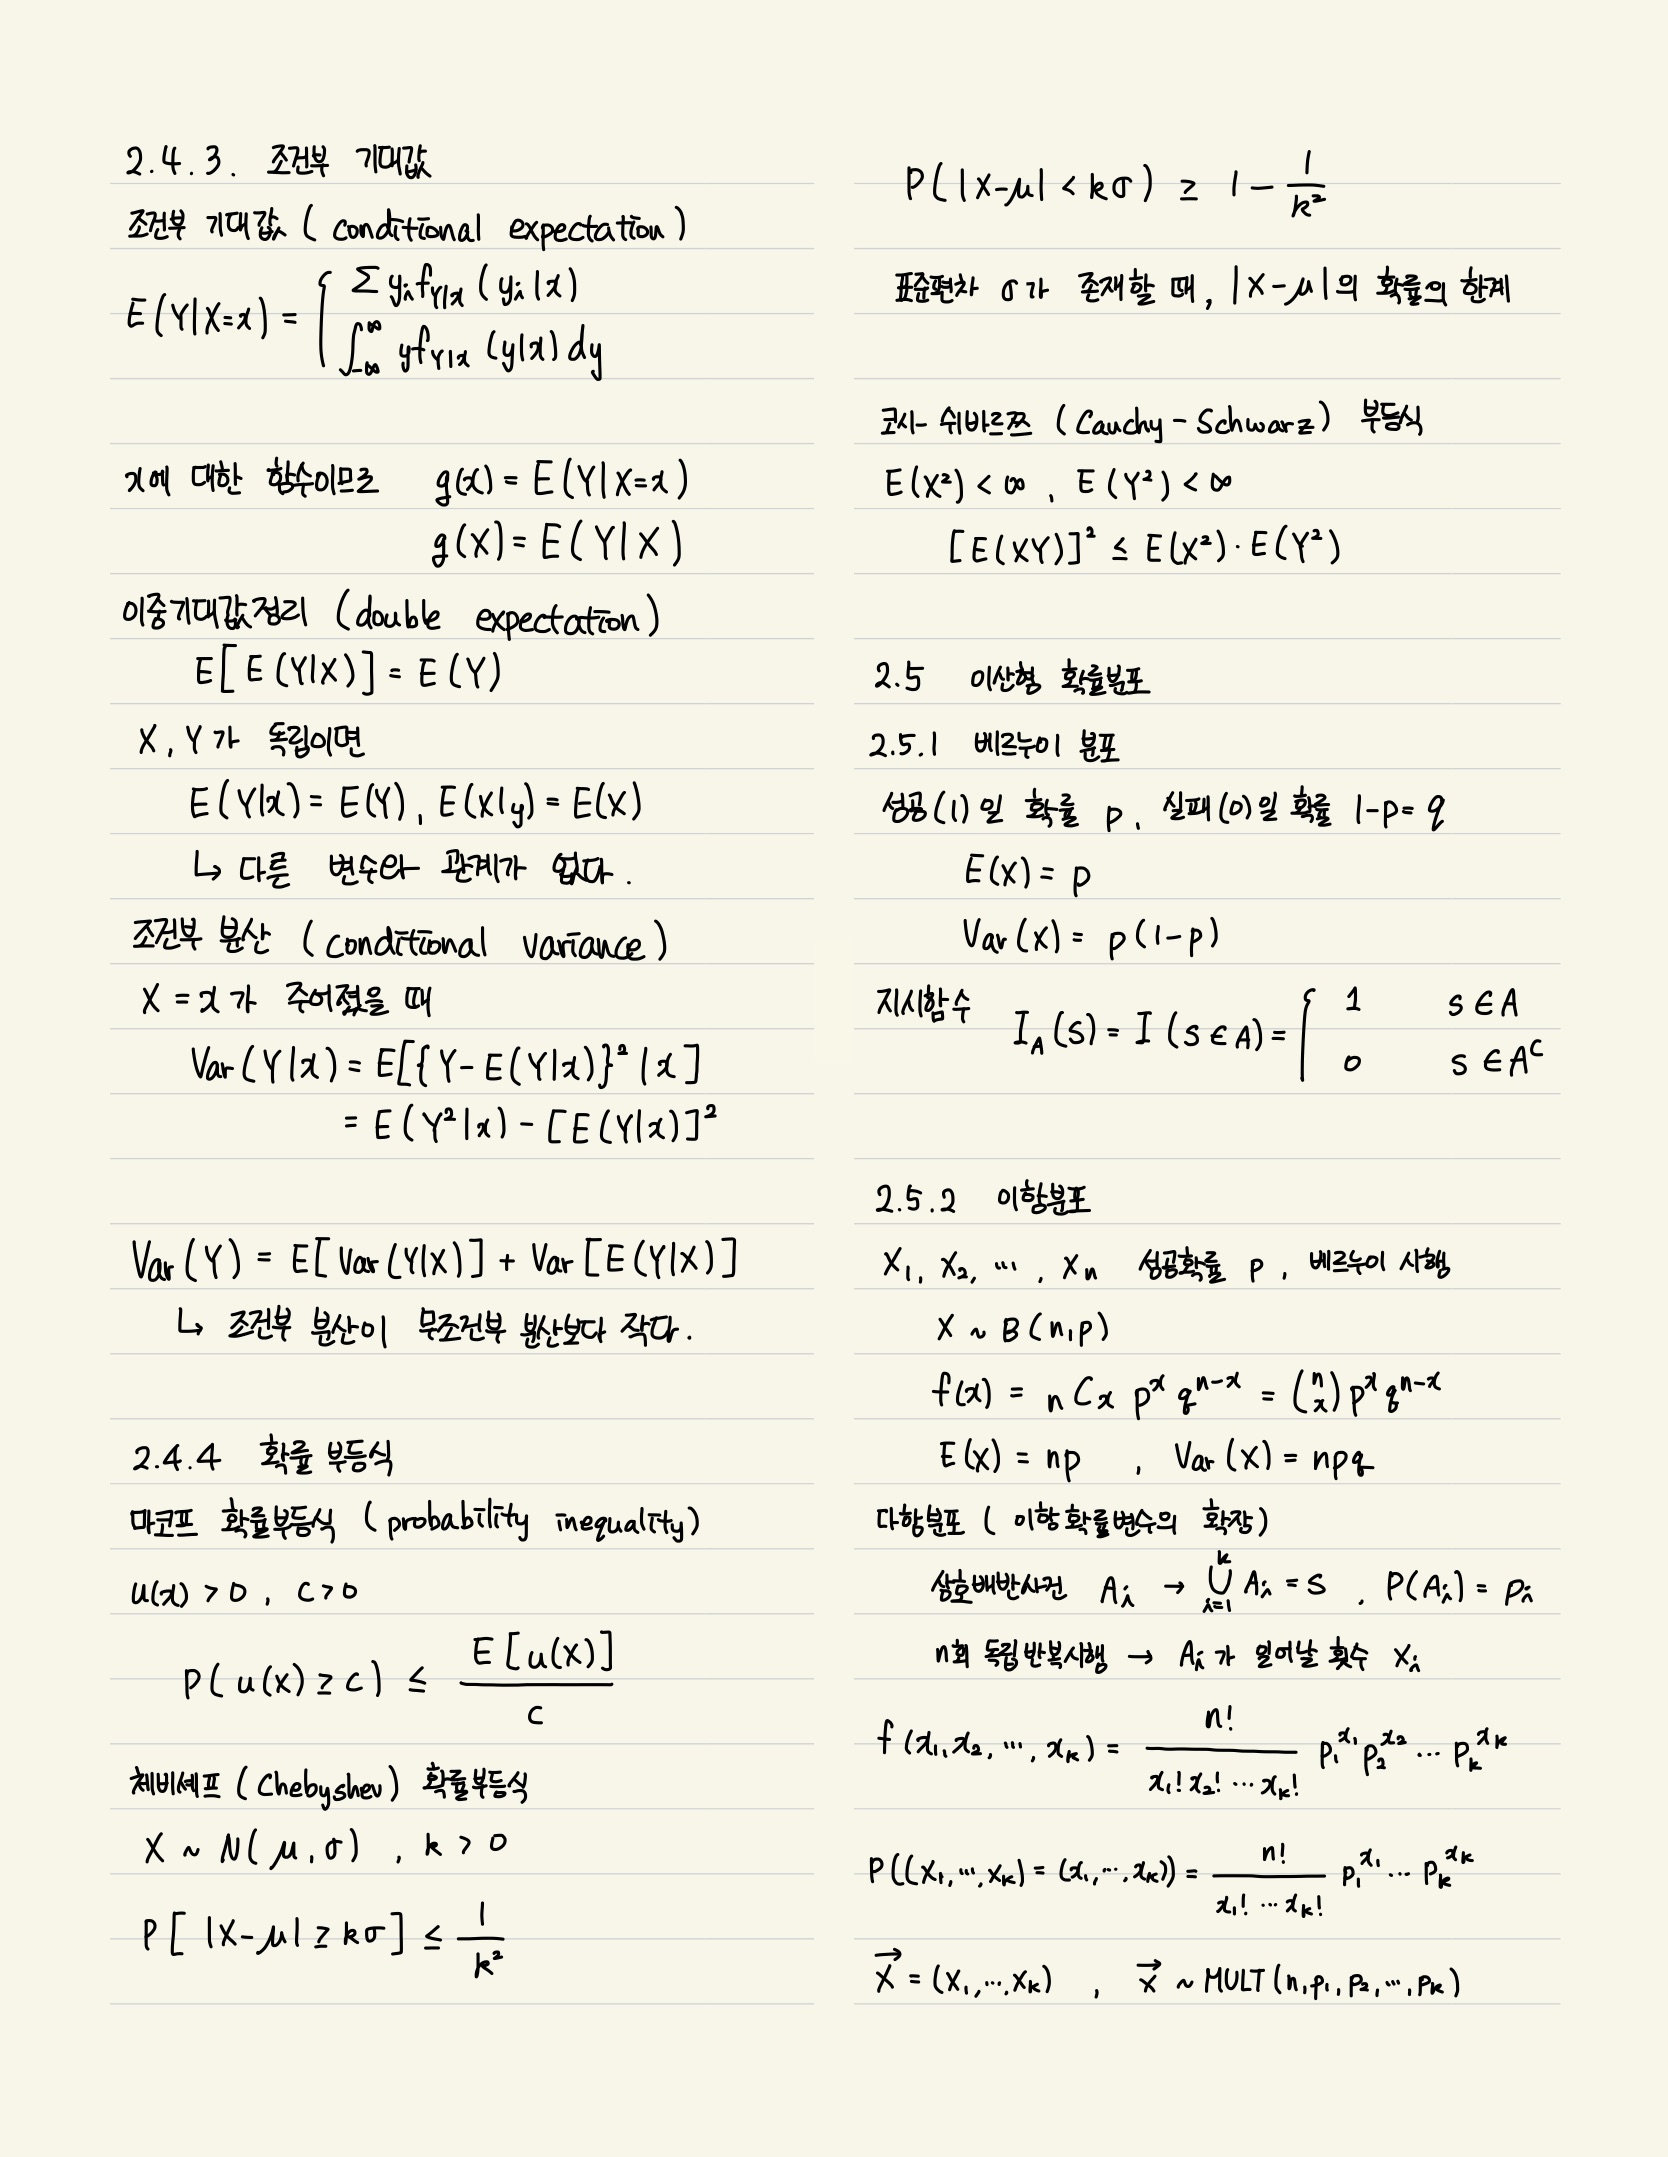 2.4.3. 조건부 기대값
조건부 기대값 (conditional expectation)
E(Y|X=x) = { Σ y_i f_{Y|x} (y_i|x)
∫_{-∞}^{∞} y f_{Y|x} (y|x) dy
x에 대한 함수이므로 g(x) = E(Y|X=x)
g(X) = E(Y|X)
이중기대값정리 (double expectation)
E[E(Y|X)] = E(Y)
X, Y가 독립이면
E(Y|x) = E(Y), E(X|y) = E(X)
↳ 다른 변수와 관계가 없다.
조건부 분산 (conditional variance)
X = x가 주어졌을 때
Var(Y|x) = E[{Y-E(Y|x)}² | x]
= E(Y²|x) - [E(Y|x)]²
Var(Y) = E[Var(Y|X)] + Var[E(Y|X)]
↳ 조건부 분산이 무조건부 분산보다 작다.
2.4.4 확률 부등식
마코프 확률부등식 (probability inequality)
u(x) > 0, c > 0
P(u(x) ≥ c) ≤ E[u(X)] / c
체비셰프 (Chebyshev) 확률부등식
X ~ N(μ, σ), k > 0
P[|X-μ| ≥ kσ] ≤ 1/k²
P(|X-μ| < kσ) ≥ 1 - 1/k²
표준편차 σ가 존재할 때, |X-μ|의 확률의 한계
코시-쉬바르쯔 (Cauchy-Schwarz) 부등식
E(X²) < ∞, E(Y²) < ∞
[E(XY)]² ≤ E(X²)·E(Y²)
2.5 이산형 확률분포
2.5.1 베르누이 분포
성공(1)일 확률 p, 실패(0)일 확률 1-p = q
E(X) = p
Var(X) = p(1-p)
지시함수 I_A(s) = I(s ∈ A) = { 1 s ∈ A
0 s ∈ A^C
2.5.2 이항분포
X₁, X₂, ⋯, Xₙ 성공확률 p, 베르누이 시행
X ~ B(n, p)
f(x) = nCx p^x q^{n-x} = (n x) p^x q^{n-x}
E(X) = np, Var(X) = npq
다항분포 (이항확률변수의 확장)
상호배반사건 A_i → ∪_{i=1}^{k} A_i = S, P(A_i) = p_i
n회 독립반복시행 → A_i가 일어날 횟수 X_i
f(x₁, x₂, ⋯, x_k) = n! / x₁! x₂! ⋯ x_k! p₁^{x₁} p₂^{x₂} ⋯ p_k^{x_k}
P((X₁, ⋯, X_k) = (x₁, ⋯, x_k)) = n! / x₁! ⋯ x_k! p₁^{x₁} ⋯ p_k^{x_k}
X⃗ = (X₁, ⋯, X_k), X⃗ ~ MULT(n, p₁, p₂, ⋯, p_k)